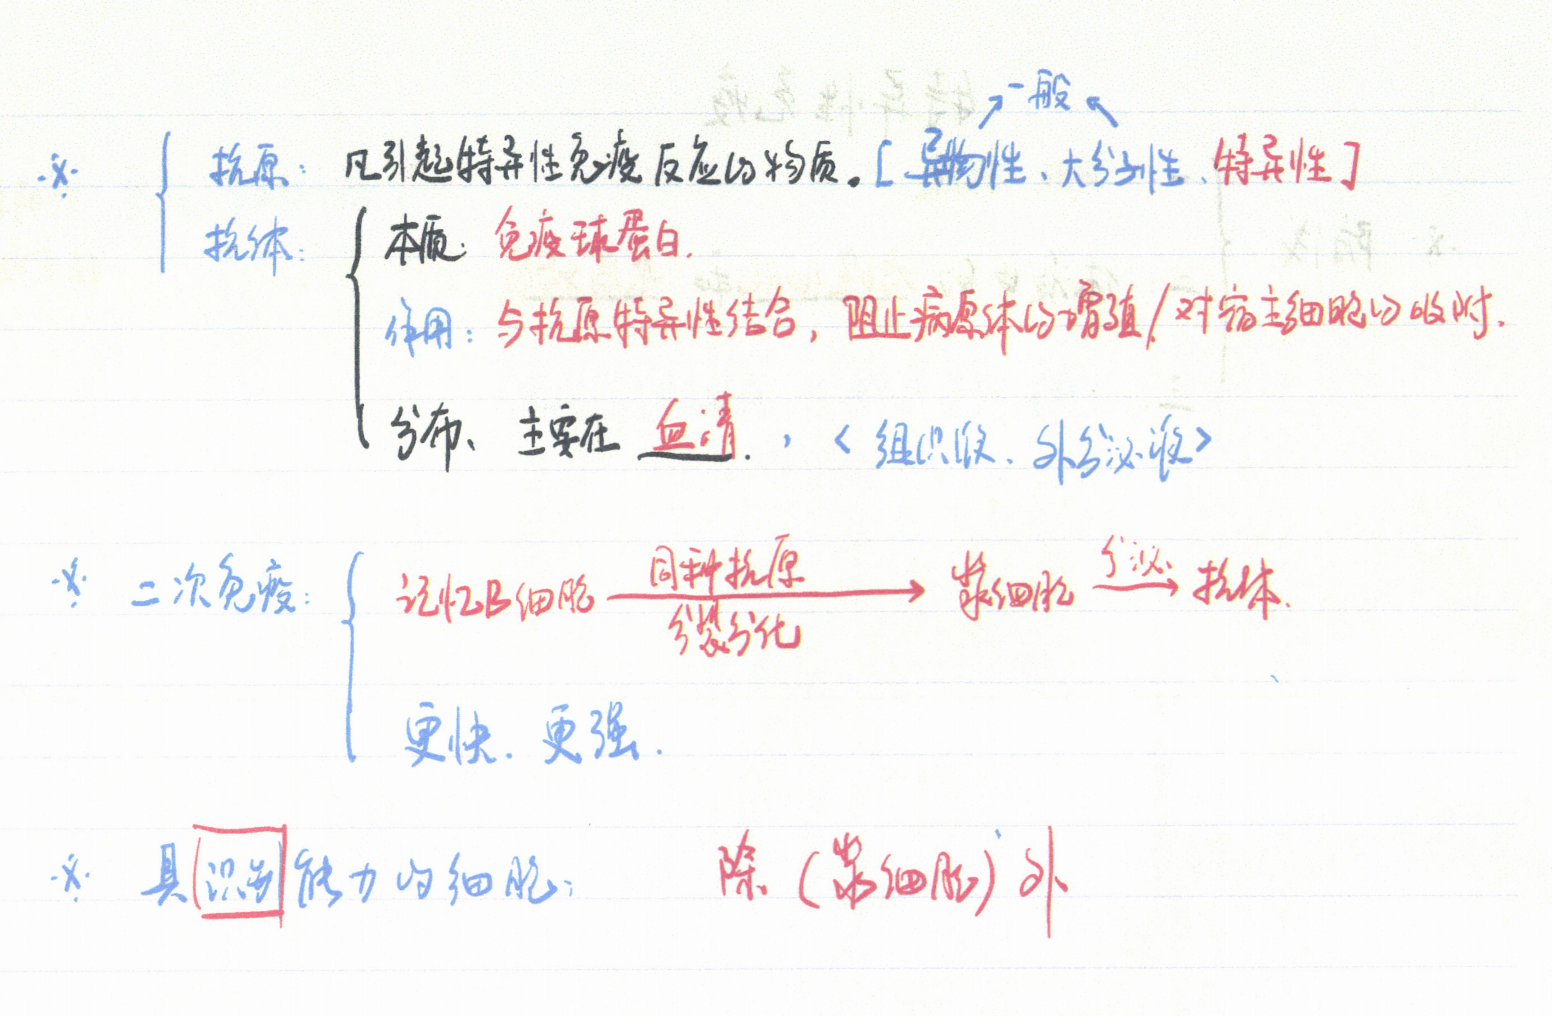 一般
※ 抗原：凡引起特异性免疫反应的物质。[异物性、大分子性、特异性]
抗体：本质：免疫球蛋白.
作用：与抗原特异性结合，阻止病原体的增殖/对宿主细胞的吸附.
分布、主要在 血清.，<组织液、外分泌液>
※ 二次免疫：记忆B细胞 同种抗原 → 浆细胞 分泌 → 抗体.
分裂分化
更快.更强.
※ 具(识别)能力的细胞： 除(浆细胞)外